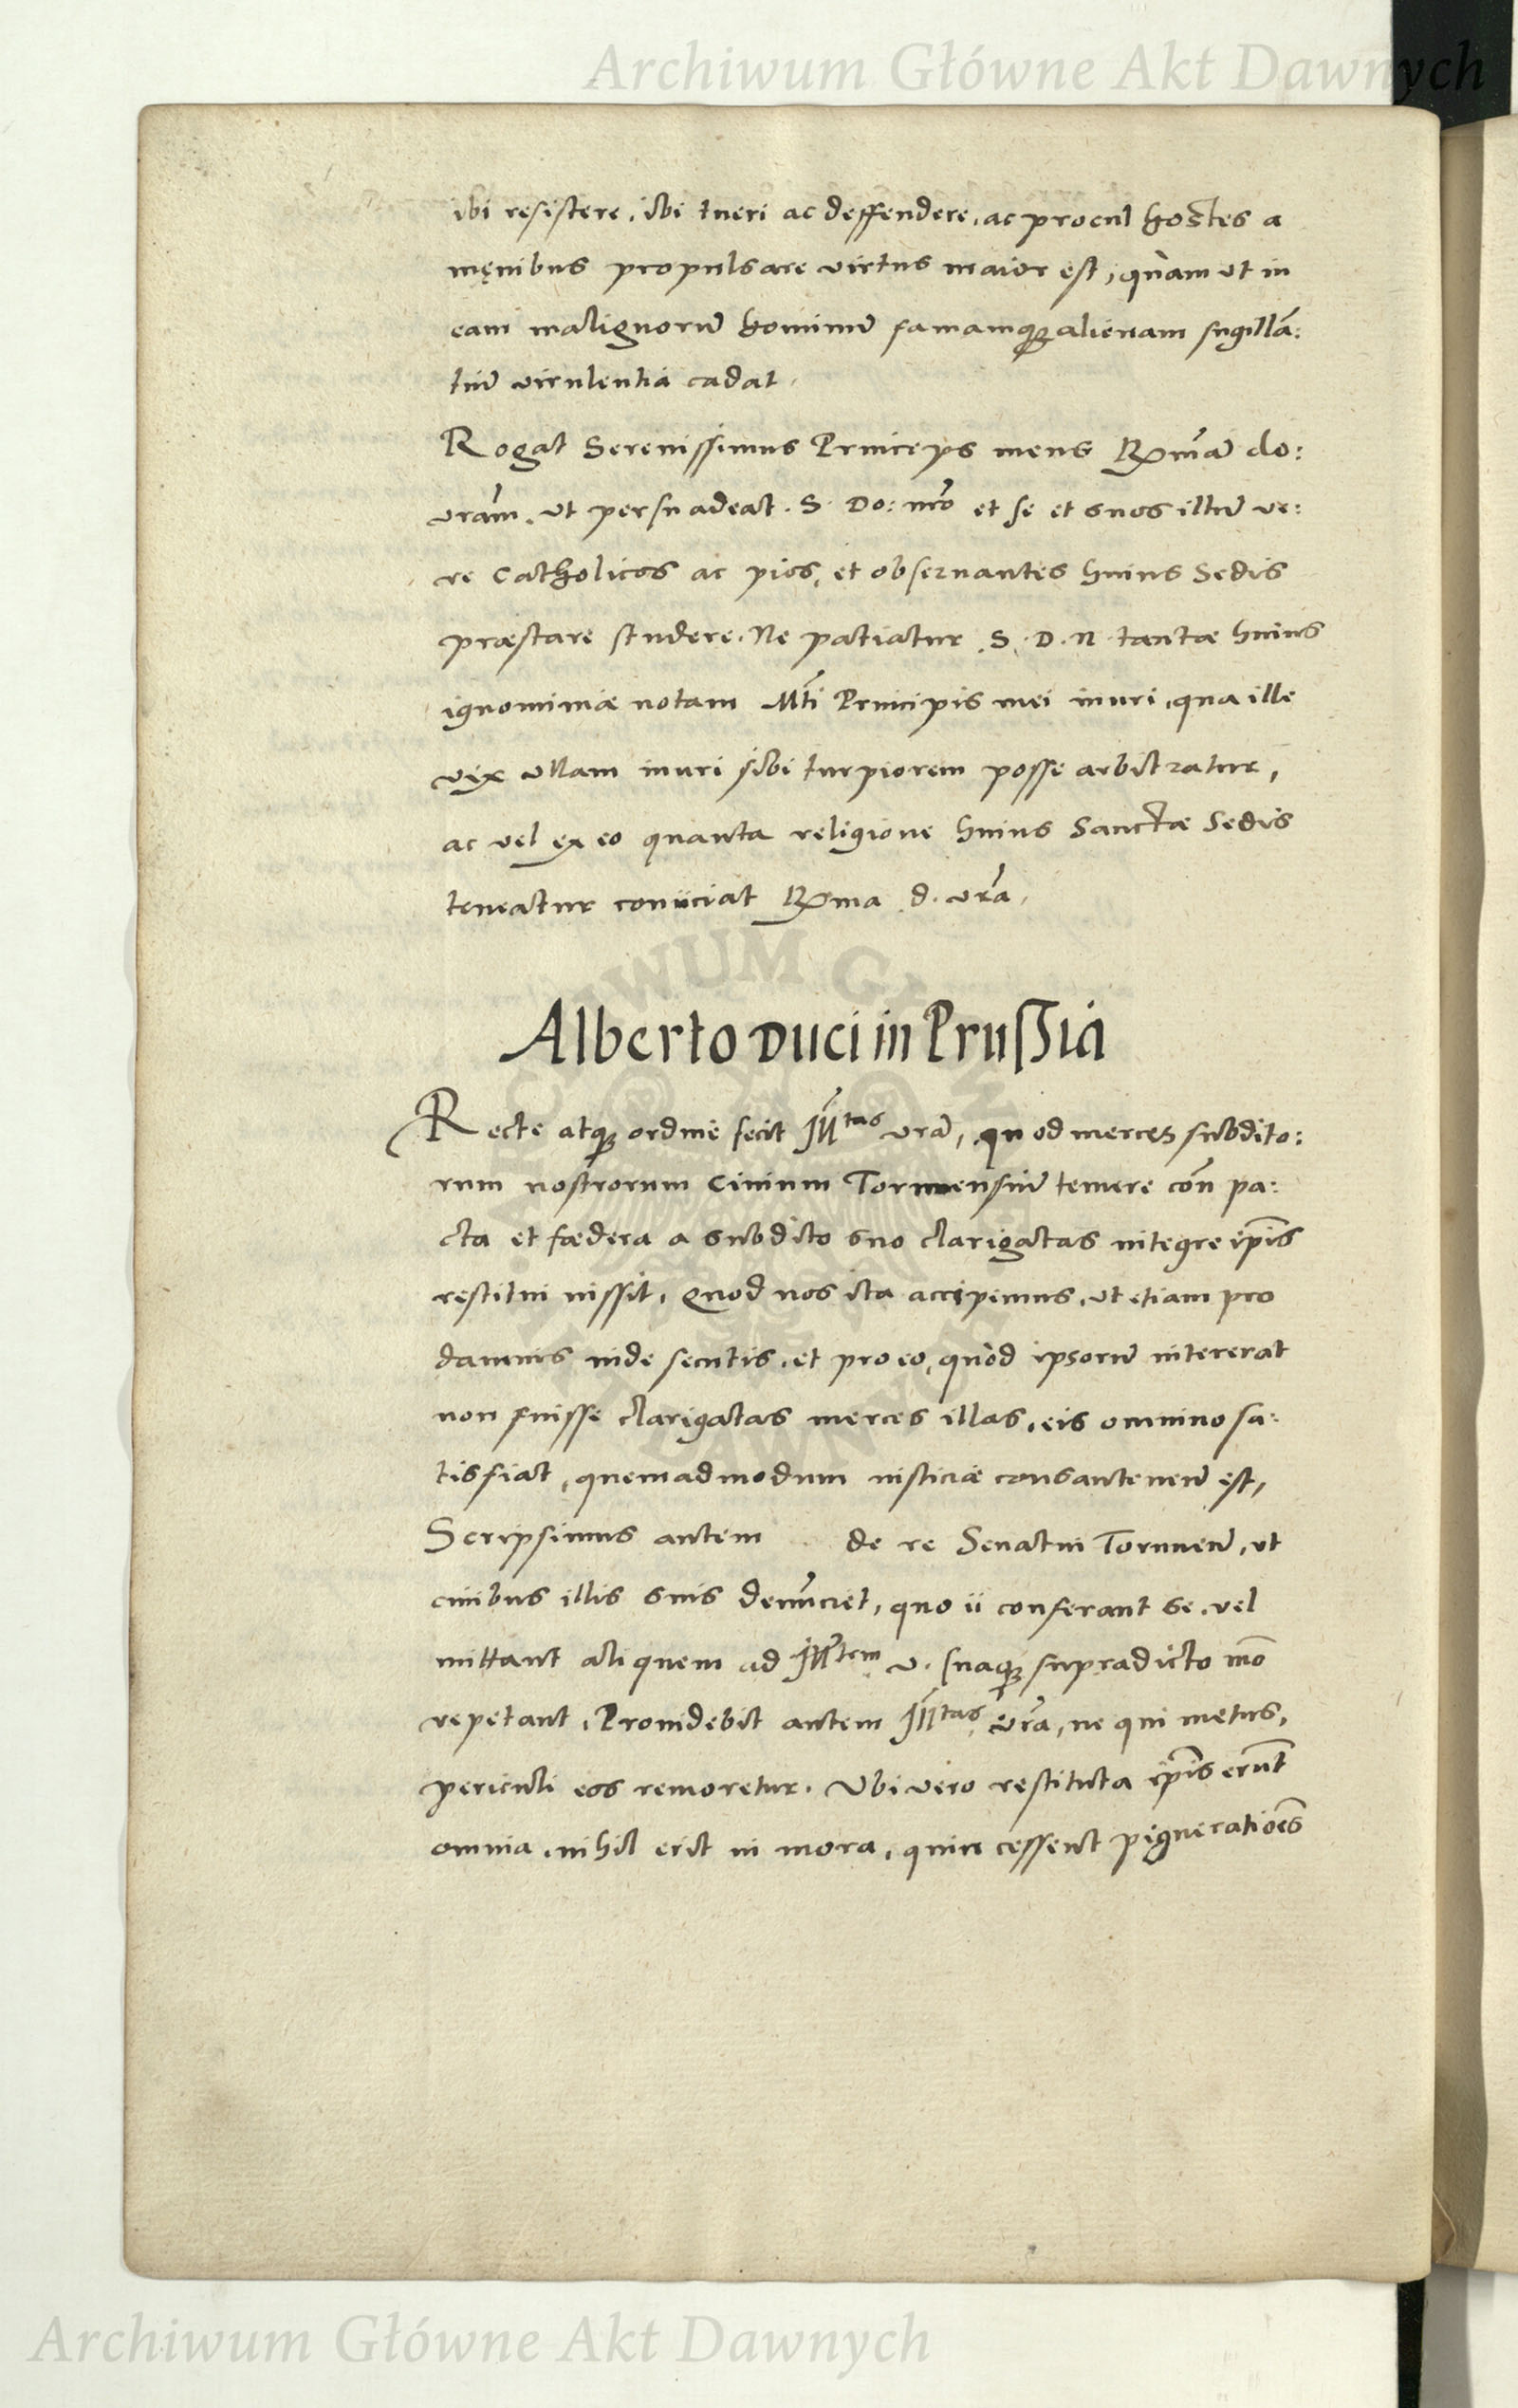 Archiwum Główne Akt Dawnych
ibi resistere, ibi tueri ac deffendere, ac procul hostes a
męnibus propulsare virtus maior est, quam ut in
eam malignorū hominū famamqꝫ alienam sugillā:
tiū virulentia cadat,
Rogat Serenissimus Princeps meus Rmā do:
vrām, ut persuadeat. S. Do: nr̄o et se et suos illū ve:
re Catholicos ac pios, et observantes huius Sedis
præstare studere. Ne patiatur S. D. N tantæ huius
ignominiæ notam Mti Principis mei inuri, qua ille
vix ullam inuri sibi turpiorem posse arbitratur,
ac vel ex eo quanta religione huius Sanctæ Sedis
teneatur coniiciat Rma d. vrā,
Alberto Duci in Prussia
Recte atqꝫ ordine fecit Illtas vrā, quod merces subdito:
rum nostrorum Civium Torunensiū temere con pa:
cta et fœdera a subdito suo clarigatas integre ip̄is
restitui iussit, Quod nos ita accipimus, ut etiam pro
damnis inde secutis, et pro eo, quod ipsorū intererat
non fuisse clarigatas merces illas, eis omnino sa:
tisfiat, quemadmodum iusticiæ consentaneū est,
Scripsimus autem de re Senatui Torunen̄, ut
civibus illis suis denūciet, quo ii conferant se, vel
mittant aliquem ad Illtem v. suaqꝫ supradicto mō
repetant, Providebit autem Illtas vrā, ne qui metus,
periculi eos remoretur. Ubi vero restituta ip̄is erūt
omnia, nihil erit in mora, quin cessent pigneratiōes
Archiwum Główne Akt Dawnych